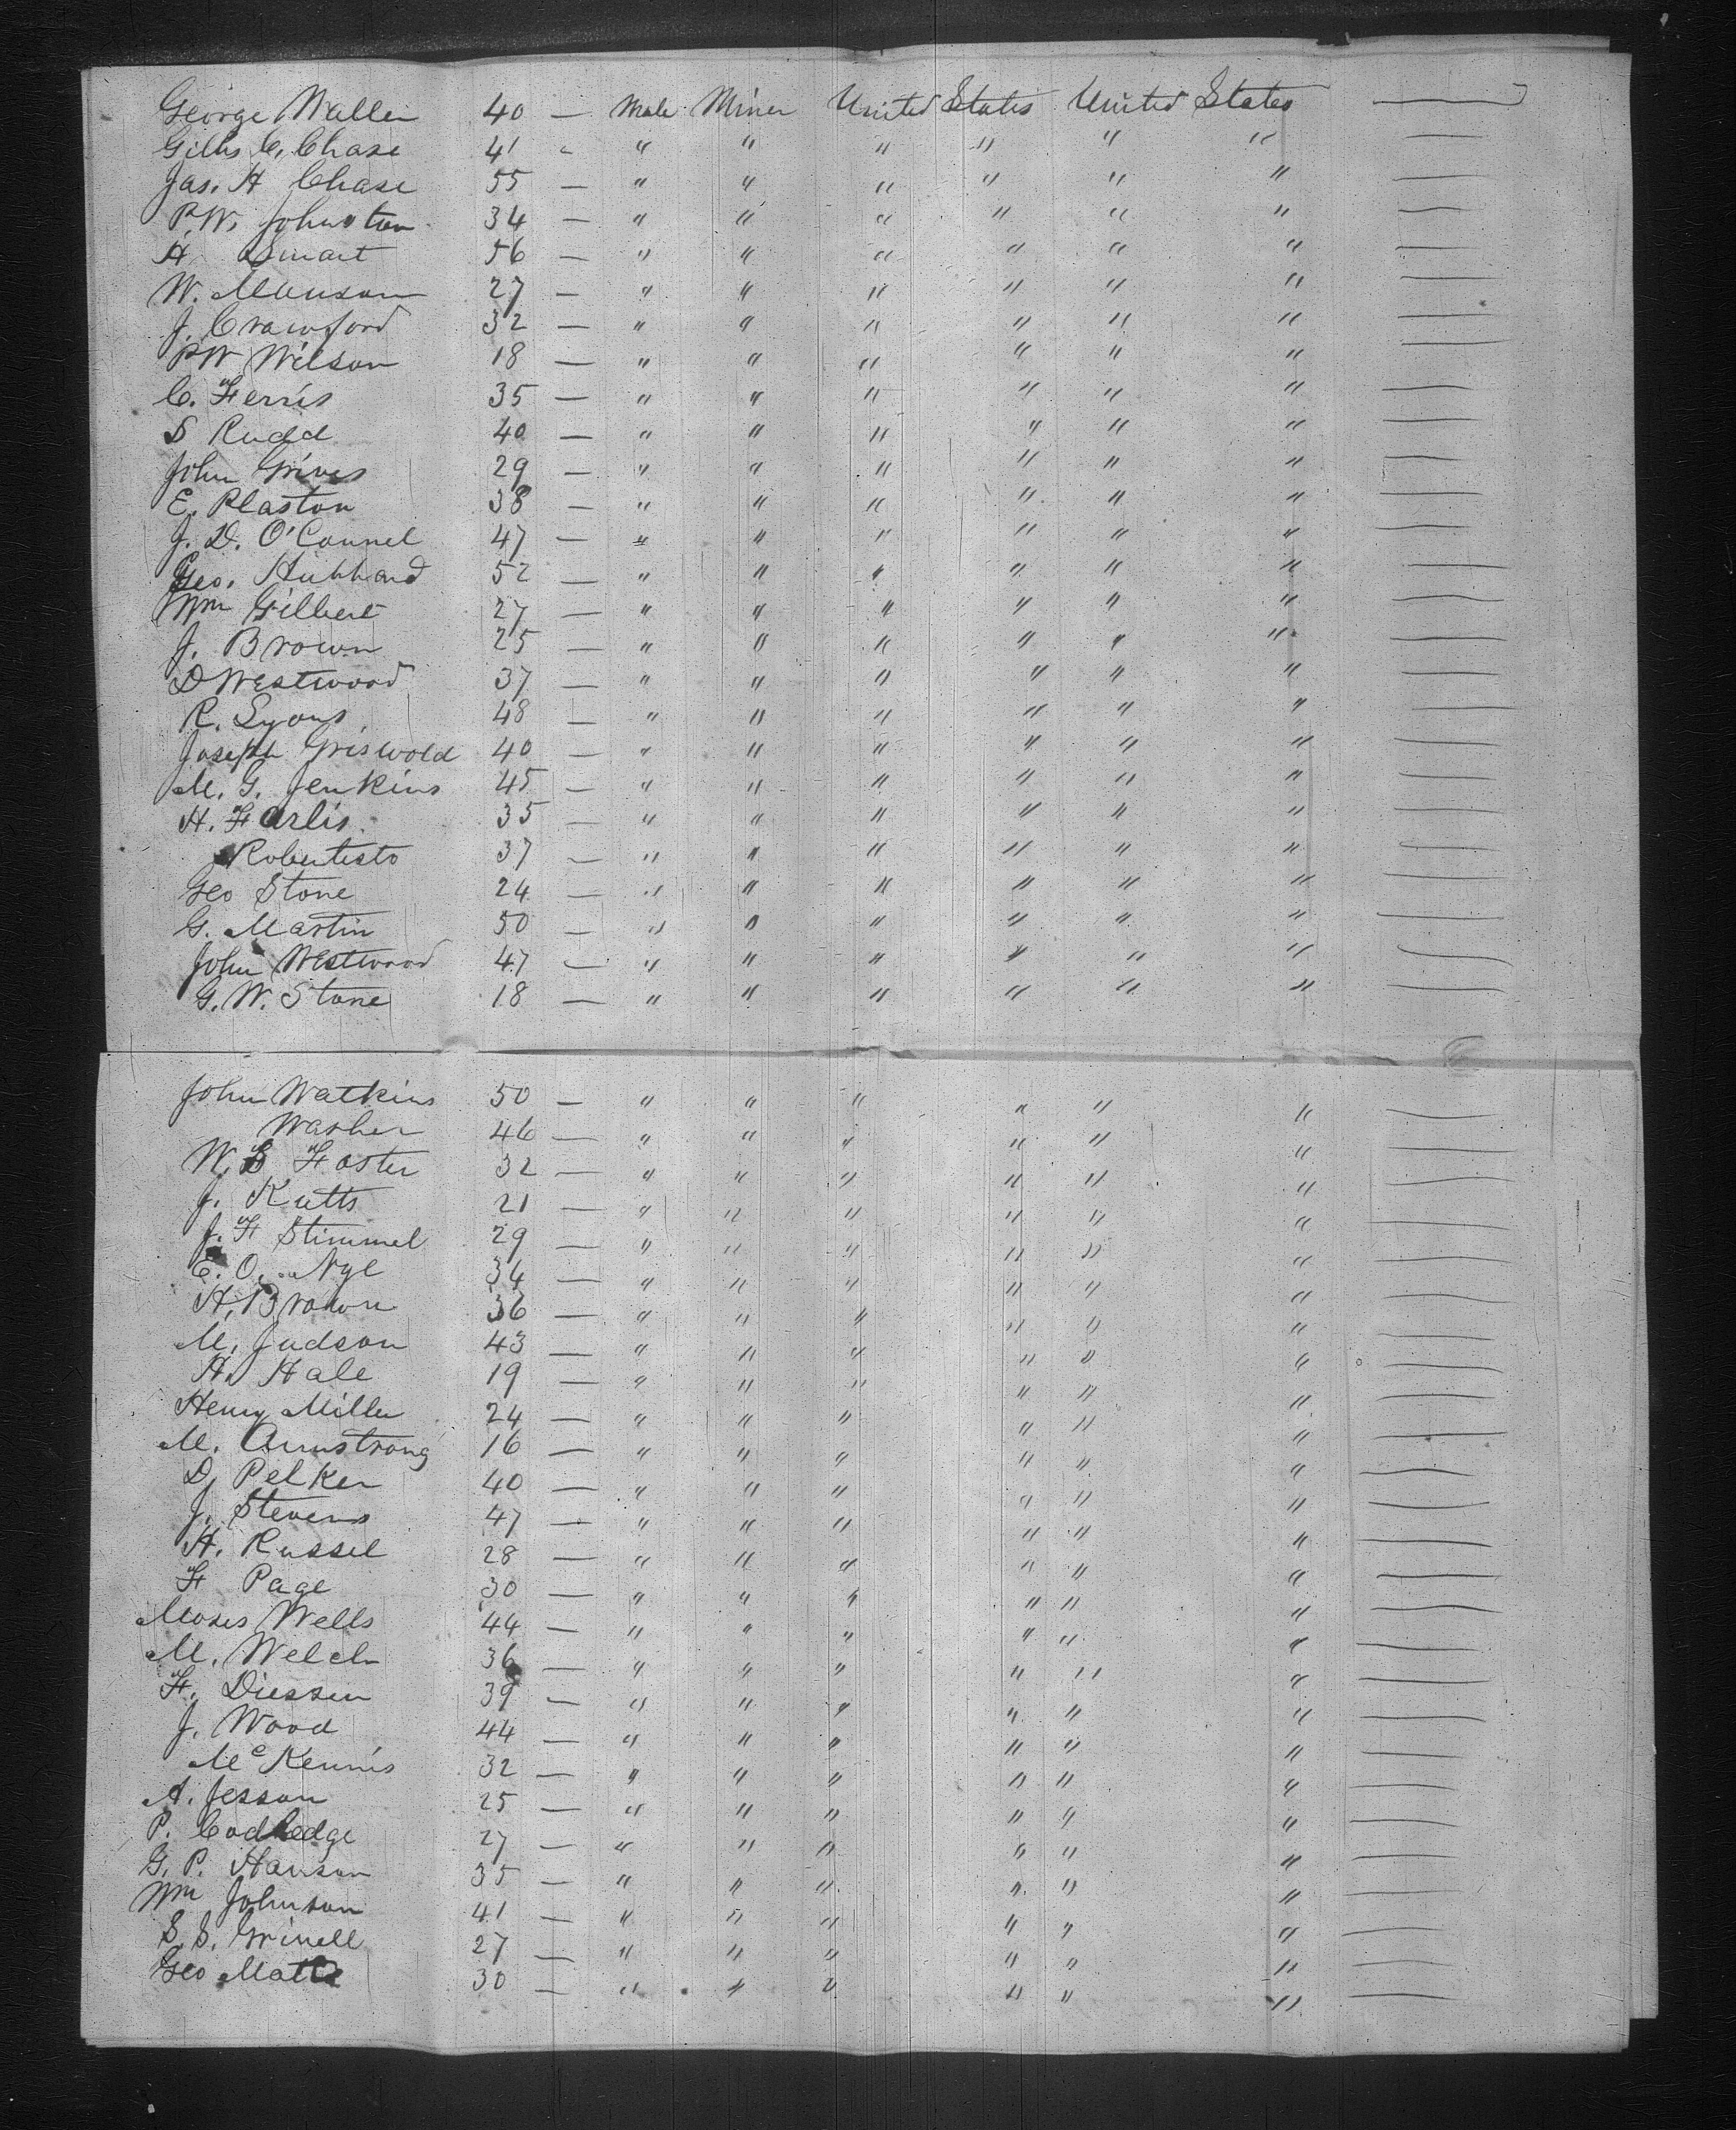 George Waller 40 — Male Miner United States United States —
Gills C. Chase 41 " " " " " " " —
Jas. H Chase 55 — " " " " " " —
P.W. Johnston 34 — " " " " " " —
H. Smart 56 — " " " " " " —
W. Munson 27 — " " " " " " —
J. Crawford 32 — " " " " " " —
P W Wilson 18 — " " " " " " —
C. Ferris 35 — " " " " " " —
S Rudd 40 — " " " " " " —
John Grives 29 — " " " " " " —
E. Plaston 38 — " " " " " " —
J. D. O'Connel 47 — " " " " " " —
Geo. Hubbard 52 — " " " " " " —
Wm Gilbert 27 — " " " " " " —
J. Brown 25 — " " " " " " —
D Westwood 37 — " " " " " " —
R. Lyons 48 — " " " " " " —
Joseph Griswold 40 — " " " " " " —
M. G. Jenkins 45 — " " " " " " —
H. Farlis 35 — " " " " " " —
Robertisto 37 — " " " " " " —
Geo Stone 24 — " " " " " " —
G. Martin 50 — " " " " " " —
John Westwood 47 — " " " " " " —
G. W. Stone 18 — " " " " " " —
John Watkins 50 — " " " " " " —
Washer 46 — " " " " " " —
W. Foster 32 — " " " " " " —
J. Kutts 21 — " " " " " " —
J. F Stimmel 29 — " " " " " " —
E. O. Nye 34 — " " " " " " —
H. Brown 36 — " " " " " " —
M. Judson 43 — " " " " " " —
H. Hale 19 — " " " " " " —
Henry Miller 24 — " " " " " " —
M. Armstrong 16 — " " " " " " —
D. Pelker 40 — " " " " " " —
J. Stevens 47 — " " " " " " —
H. Russel 28 — " " " " " " —
F Page 30 — " " " " " " —
Moses Wells 44 — " " " " " " —
M. Welch 36 — " " " " " " —
F. Diessen 39 — " " " " " " —
J. Wood 44 — " " " " " " —
McKennis 32 — " " " " " " —
A. Jesson 25 — " " " " " " —
P. Codledge 27 — " " " " " " —
G. P. Hanson 35 — " " " " " " —
Wm Johnson 41 — " " " " " " —
S. S. Grinell 27 — " " " " " " —
Geo 30 — " " " " " " —